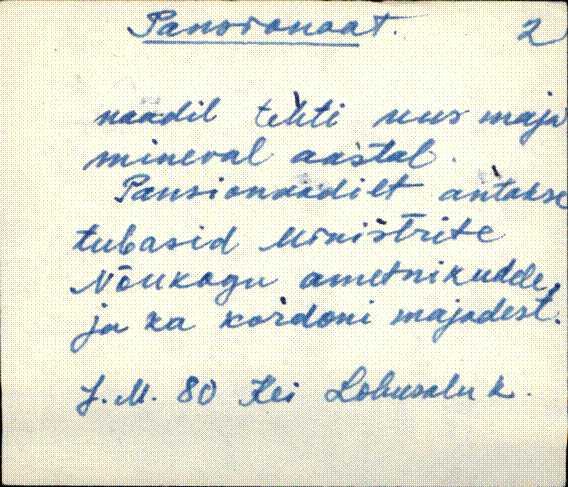 Pansionaat. 2
naadil tehti uus maja
mineval aastal.
Pansionaadilt antakse
tubasid Ministrite
Nõukogu ametnikudele,
ja ka kordoni majadest.
J. M. 80 Kei Lohusalu k.